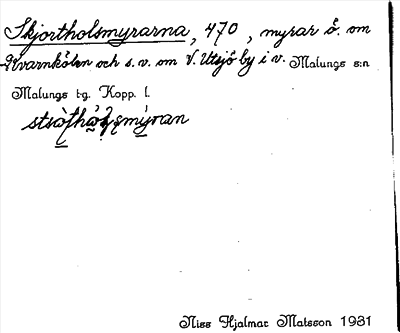 Skjortholsmyrarna, 470, myrar ö. om
Kvarnkölen och s.v. om V. Utsjö by i v. Malungs s:n
Malungs tg. Kopp. l.
Niss Hjalmar Matsson 1931